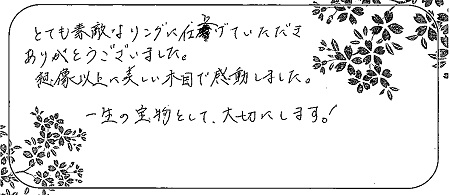 とても素敵なリングに仕上げていただき
ありがとうございました。
想像以上に美しい木目で感動しました。
一生の宝物として、大切にします。!